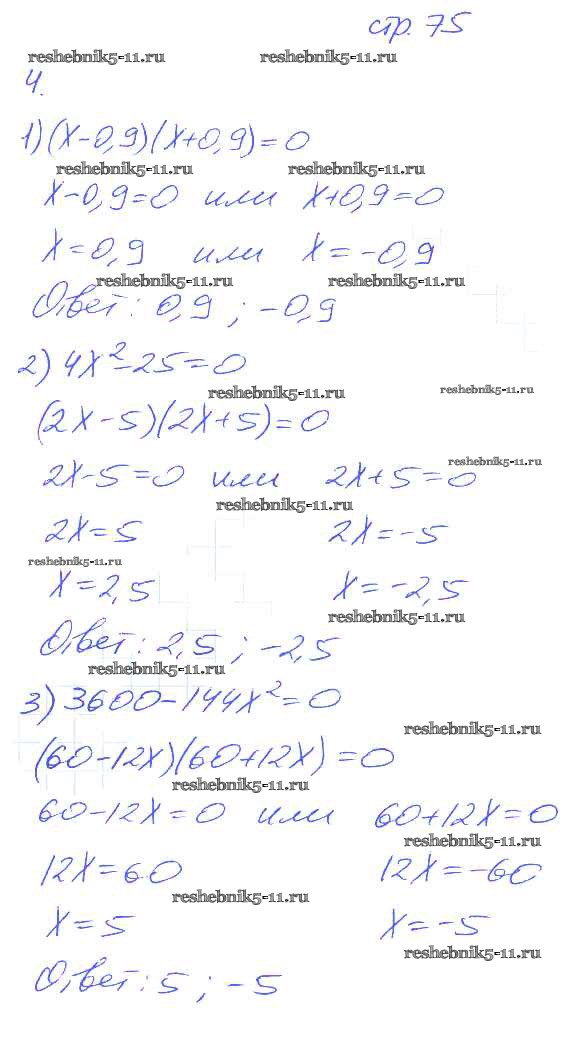 стр. 75
reshebnik5-11.ru reshebnik5-11.ru
4.
1) (x-0,9)(x+0,9)=0
reshebnik5-11.ru reshebnik5-11.ru
x-0,9=0 или x+0,9=0
x=0,9 или x=-0,9
reshebnik5-11.ru reshebnik5-11.ru
Ответ: 0,9 ; -0,9
2) 4x²-25=0
reshebnik5-11.ru reshebnik5-11.ru
(2x-5)(2x+5)=0
reshebnik5-11.ru
2x-5=0 или 2x+5=0
reshebnik5-11.ru
2x=5 2x=-5
reshebnik5-11.ru
x=2,5 x=-2,5
reshebnik5-11.ru
Ответ: 2,5 ; -2,5
reshebnik5-11.ru
3) 3600-144x²=0
reshebnik5-11.ru
(60-12x)(60+12x)=0
reshebnik5-11.ru
60-12x=0 или 60+12x=0
reshebnik5-11.ru
12x=60 12x=-60
reshebnik5-11.ru
x=5 x=-5
reshebnik5-11.ru
Ответ: 5 ; -5